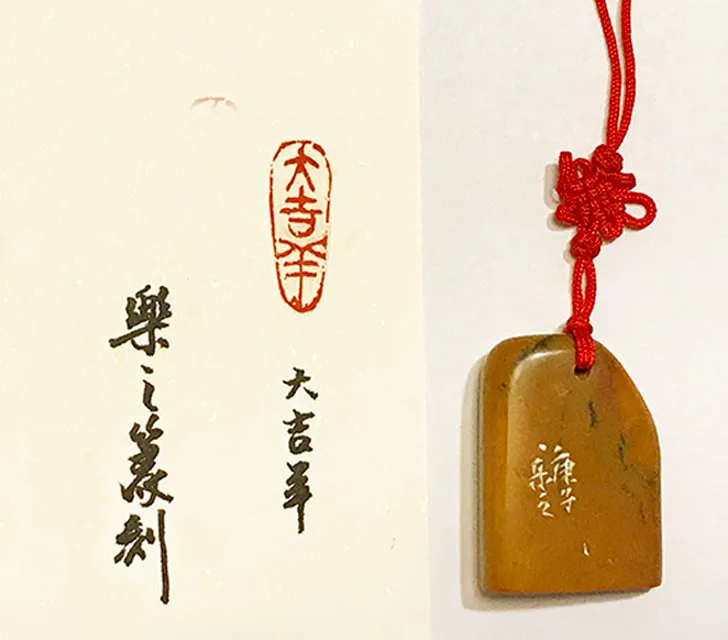 大吉羊
大吉羊
樂之篆刻
庚子
乐之